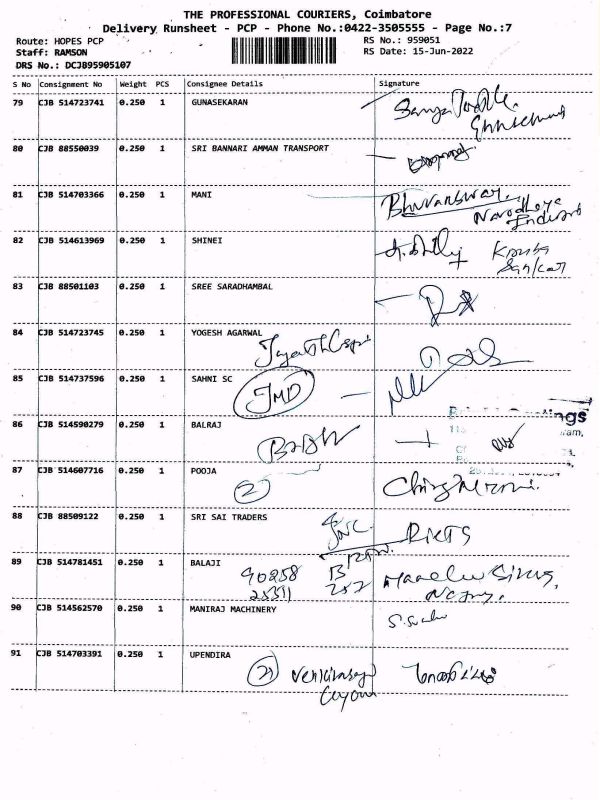 THE PROFESSIONAL COURIERS, Coimbatore
Delivery Runsheet - PCP - Phone No.:0422-3505555 - Page No.:7
Route: HOPES PCP
RS No.: 959051
Staff: RAMSON
RS Date: 15-Jun-2022
DRS No.: DCJB95905107
S No Consignment No Weight PCS Consignee Details Signature
79 CJB 514723741 0.250 1 GUNASEKARAN
80 CJB 88550039 0.250 1 SRI BANNARI AMMAN TRANSPORT
81 CJB 514703366 0.250 1 MANI
Bhuvaneswar.
82 CJB 514613969 0.250 1 SHINEI
83 CJB 88501103 0.250 1 SREE SARADHAMBAL
84 CJB 514723745 0.250 1 YOGESH AGARWAL
85 CJB 514737596 0.250 1 SAHNI SC
JMD
86 CJB 514590279 0.250 1 BALRAJ
87 CJB 514607716 0.250 1 POOJA
2
88 CJB 88509122 0.250 1 SRI SAI TRADERS
89 CJB 514781451 0.250 1 BALAJI
90258
90 CJB 514562570 0.250 1 MANIRAJ MACHINERY
91 CJB 514703391 0.250 1 UPENDIRA